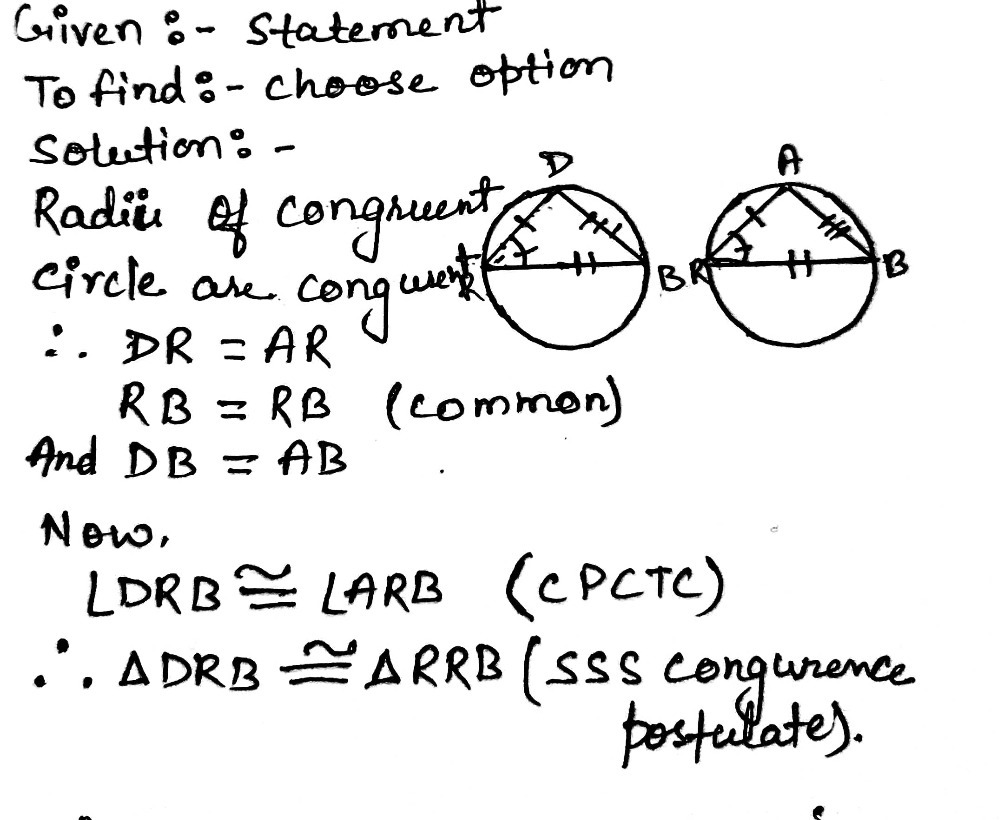 Given :- Statement
To find :- choose option
Solution :-
Radii of congruent
circle are congruent
∴ DR = AR
RB = RB (common)
And DB = AB
Now,
∠DRB ≅ ∠ARB (CPCTC)
∴ ΔDRB ≅ ΔRRB (SSS congurence
postulates).
D
R
B
A
R
B